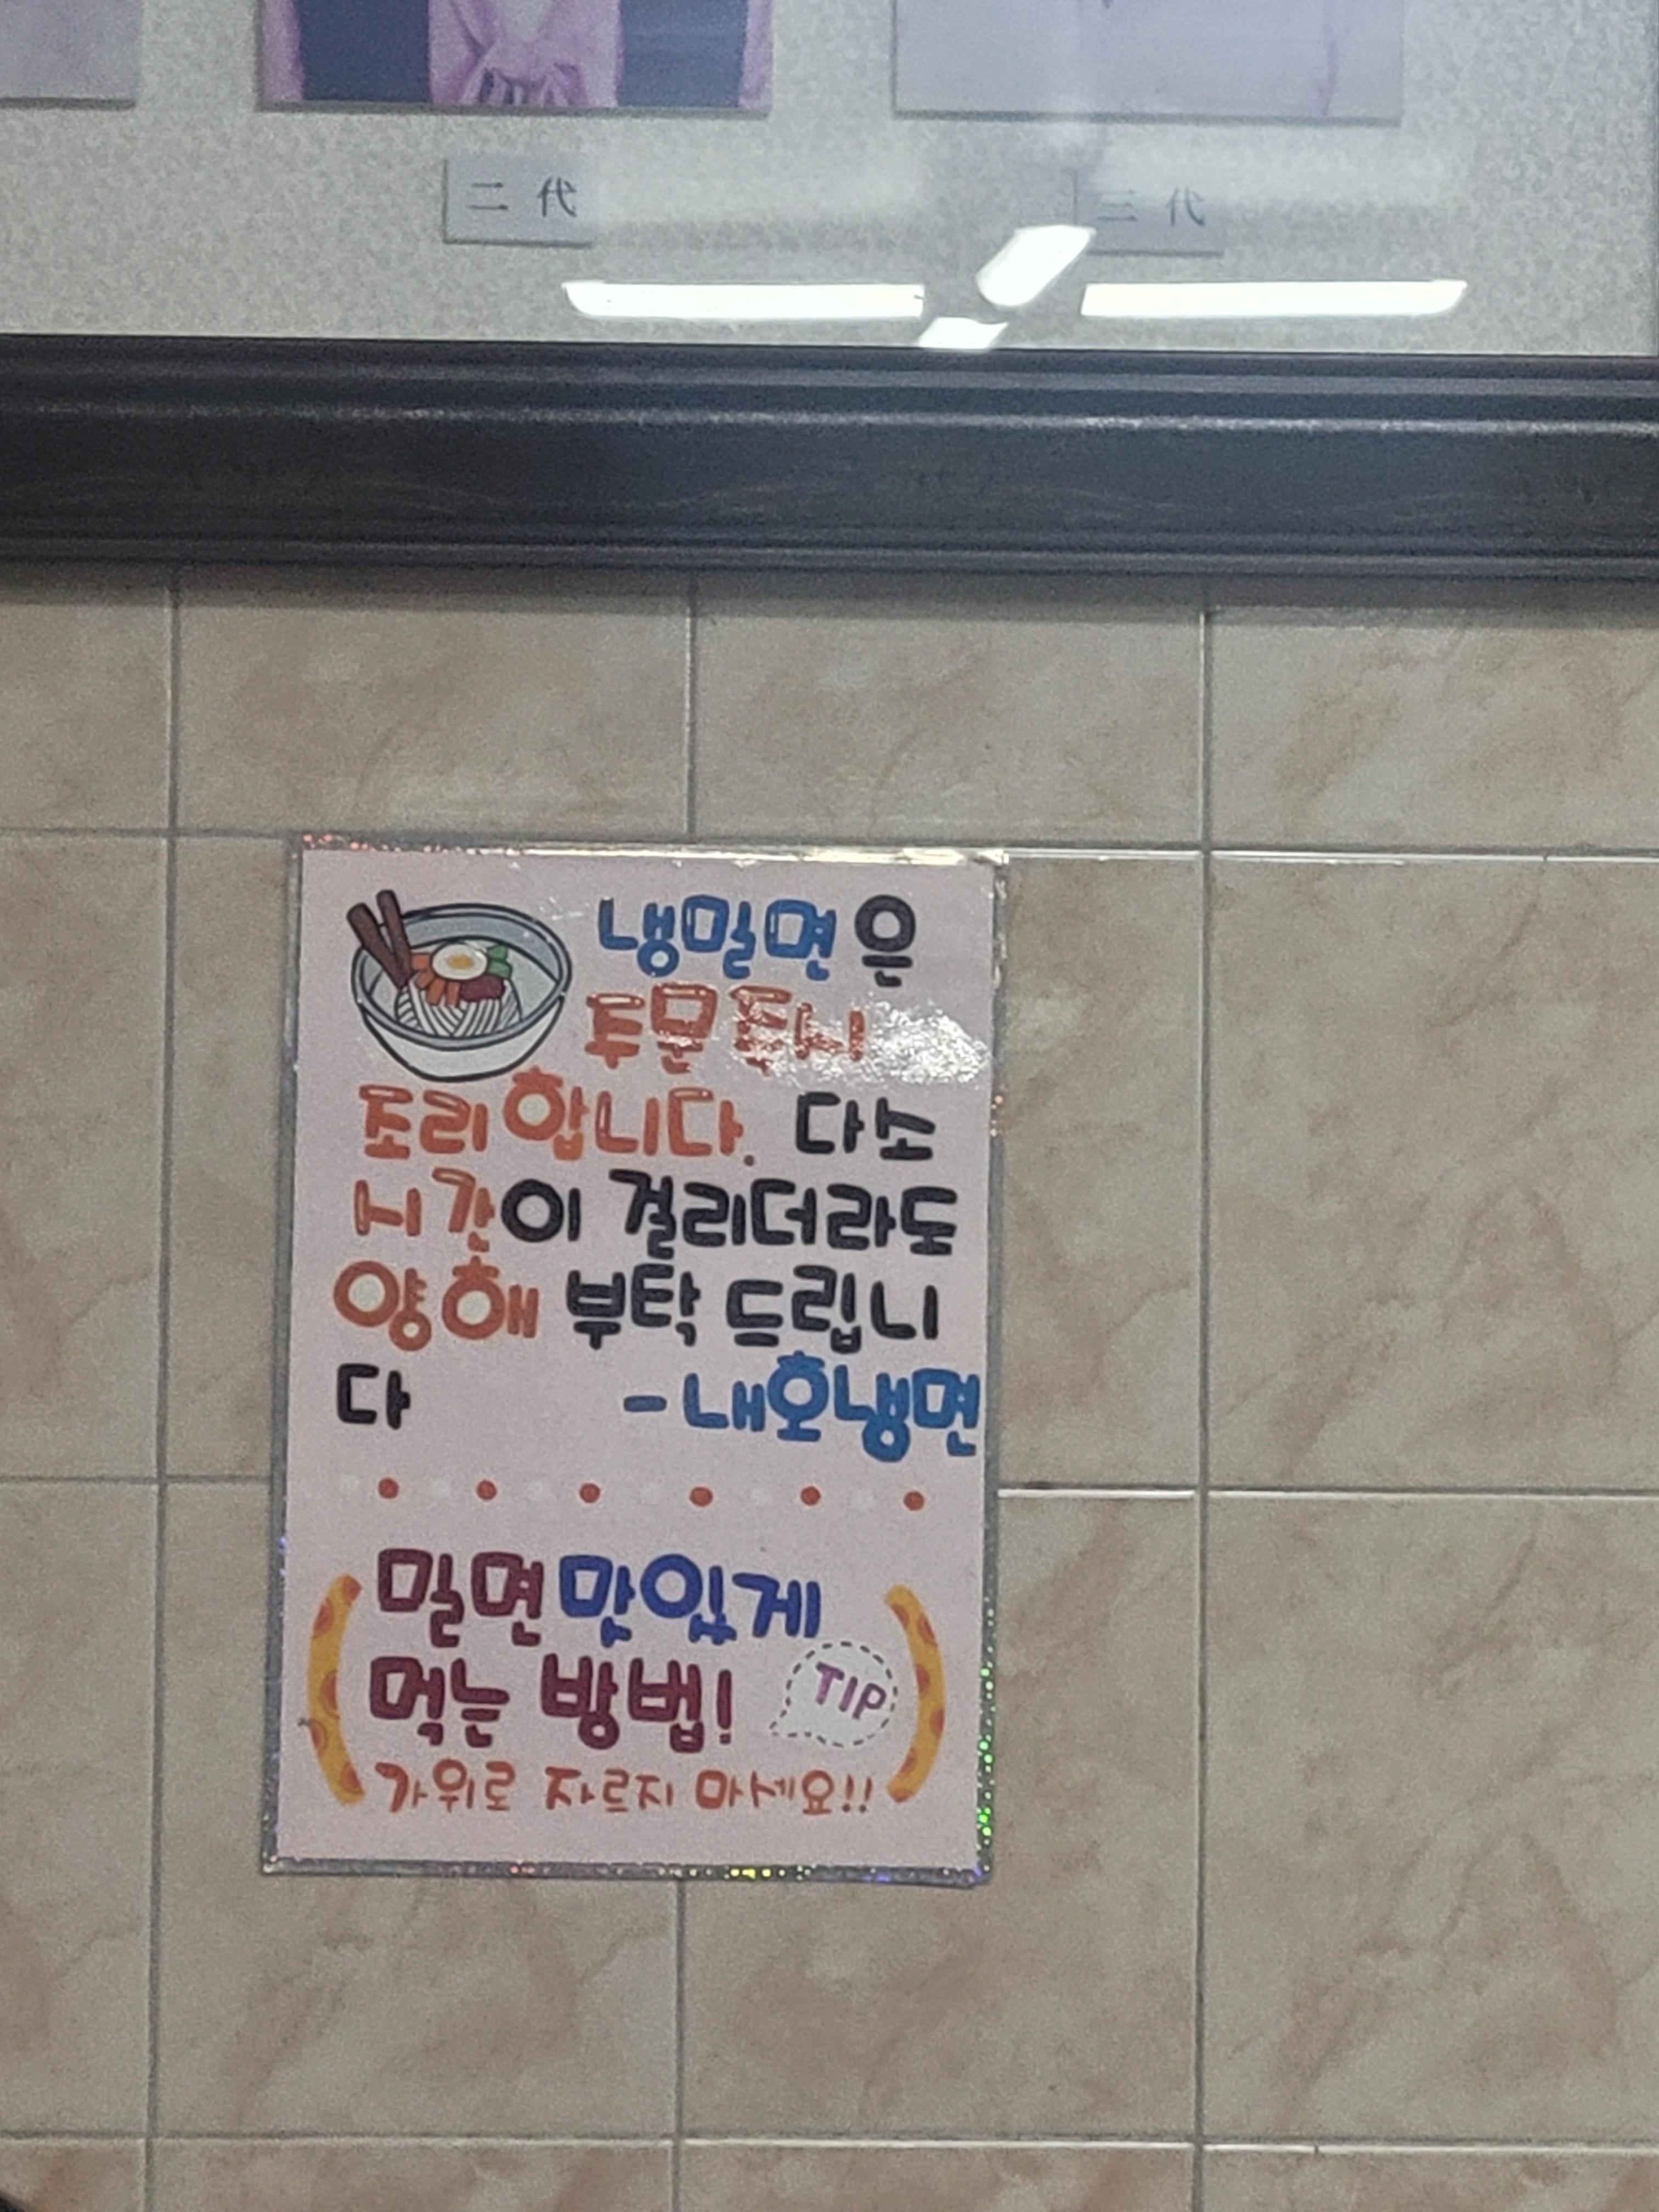 二 代
三 代
냉밀면은
주문즉시
조리합니다. 다소
시간이 걸리더라도
양해 부탁 드립니
다 -내호냉면
밀면 맛있게
먹는 방법!
TIP
가위로 자르지 마세요!!